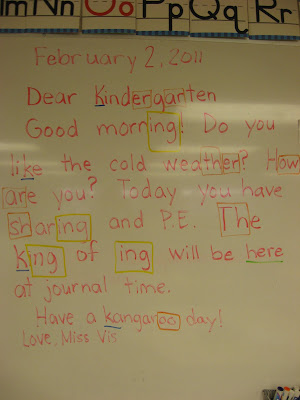 Mm Nn Oo Pp Qq Rr
February 2, 2011
Dear Kindergarten
Good morning! Do you
like the cold weather? How
are you? Today you have
sharing and P.E. The
king of ing will be here
at journal time.
Have a kangaroo day!
Love, Miss Vis